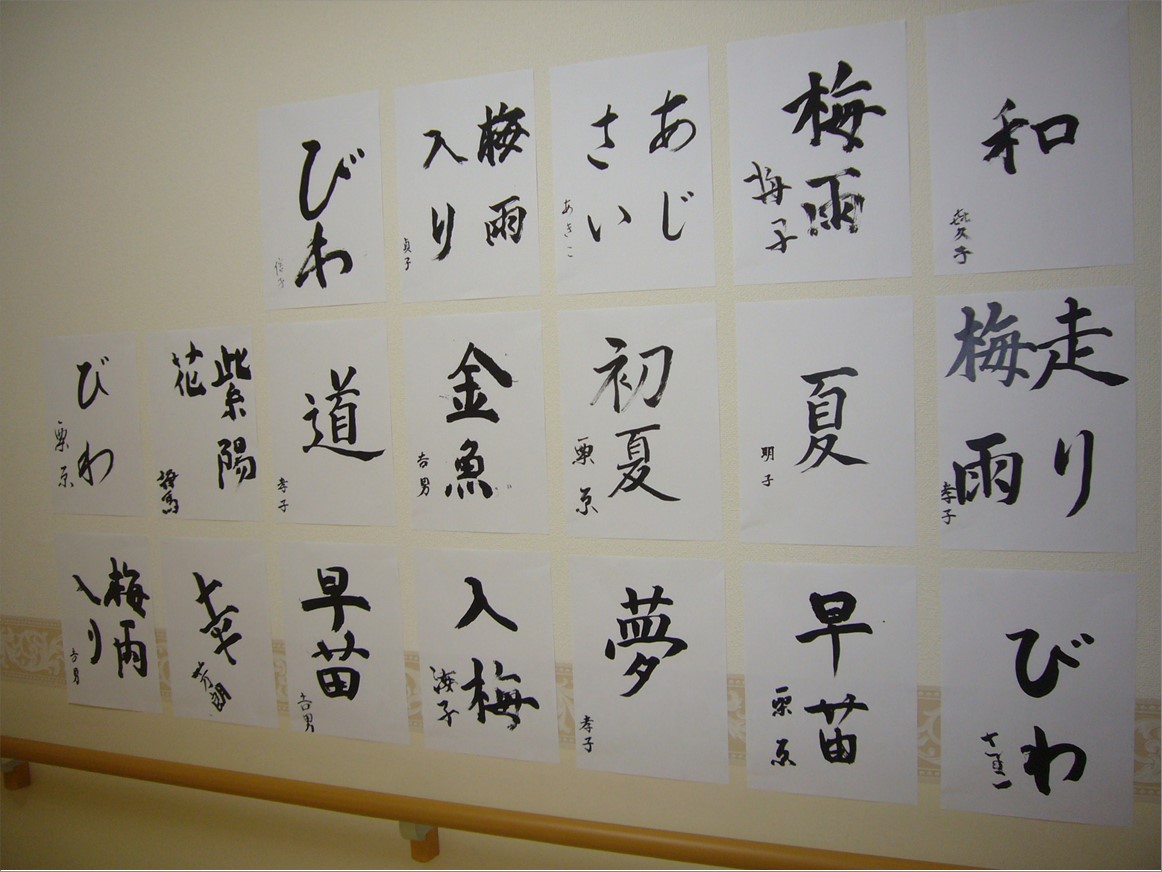 びわ
梅雨
入り
貞子
あじ
さい
あきこ
梅雨
梅子
和
喜久子
びわ
栗原
紫陽
花
道
孝子
金魚
吉男
初夏
栗原
夏
明子
走り
梅雨
孝子
梅雨
入り
吉男
早苗
吉男
入梅
夢
孝子
早苗
栗原
びわ